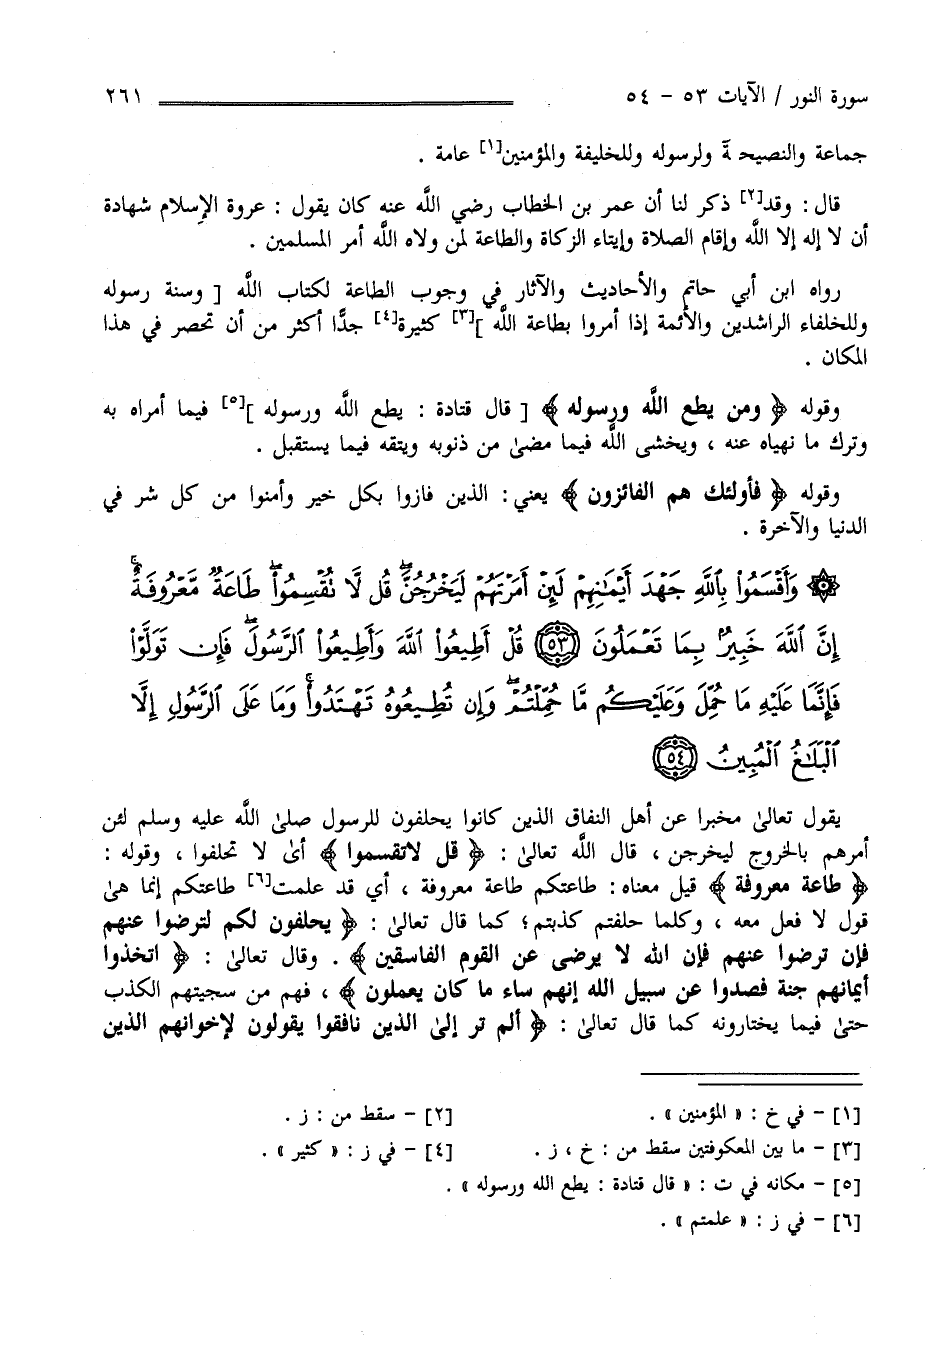 سورة النور / الآيات ٥٣ - ٥٤ ٢٦١
جماعة والنصيحة ولرسوله وللخليفة والمؤمنين[١] عامة .
قال : وقد[٢] ذكر لنا أن عمر بن الخطاب رضي اللَّه عنه كان يقول : عروة الإِسلام شهادة
أن لا إله إلا اللَّه وإقام الصلاة وإيتاء الزكاة والطاعة لمن ولاه اللَّه أمر المسلمين .
رواه ابن أبي حاتم والأحاديث والآثار في وجوب الطاعة لكتاب اللَّه [ وسنة رسوله
وللخلفاء الراشدين والأئمة إذا أمروا بطاعة اللَّه ][٣] كثيرة[٤] جدًّا أكثر من أن تحصر في هذا
المكان .
وقوله ﴿ ومن يطع اللَّه ورسوله ﴾ [ قال قتادة : يطع اللَّه ورسوله ][٥] فيما أمراه به
وترك ما نهياه عنه ، ويخشى اللَّه فيما مضىٰ من ذنوبه ويتقه فيما يستقبل .
وقوله ﴿ فأولئك هم الفائزون ﴾ يعني : الذين فازوا بكل خير وأمنوا من كل شر في
الدنيا والآخرة .
۞ وَأَقْسَمُوا۟ بِٱللَّهِ جَهْدَ أَيْمَـٰنِهِمْ لَئِنْ أَمَرْتَهُمْ لَيَخْرُجُنَّ ۖ قُل لَّا تُقْسِمُوا۟ ۖ طَاعَةٌ مَّعْرُوفَةٌ ۚ
إِنَّ ٱللَّهَ خَبِيرٌۢ بِمَا تَعْمَلُونَ ٥٣ قُلْ أَطِيعُوا۟ ٱللَّهَ وَأَطِيعُوا۟ ٱلرَّسُولَ ۖ فَإِن تَوَلَّوْا۟
فَإِنَّمَا عَلَيْهِ مَا حُمِّلَ وَعَلَيْكُم مَّا حُمِّلْتُمْ ۖ وَإِن تُطِيعُوهُ تَهْتَدُوا۟ ۚ وَمَا عَلَى ٱلرَّسُولِ إِلَّا
ٱلْبَلَـٰغُ ٱلْمُبِينُ ٥٤
يقول تعالىٰ مخبرا عن أهل النفاق الذين كانوا يحلفون للرسول صلىٰ اللَّه عليه وسلم لئن
أمرهم بالخروج ليخرجن ، قال اللَّه تعالىٰ : ﴿ قل لاتقسموا ﴾ أىٰ لا تحلفوا ، وقوله :
﴿ طاعة معروفة ﴾ قيل معناه : طاعتكم طاعة معروفة ، أي قد علمت[٦] طاعتكم إنما هىٰ
قول لا فعل معه ، وكلما حلفتم كذبتم ؛ كما قال تعالىٰ : ﴿ يحلفون لكم لترضوا عنهم
فإن ترضوا عنهم فإن الله لا يرضى عن القوم الفاسقين ﴾ . وقال تعالىٰ : ﴿ اتخذوا
أيمانهم جنة فصدوا عن سبيل الله إنهم ساء ما كان يعملون ﴾ ، فهم من سجيتهم الكذب
حتىٰ فيما يختارونه كما قال تعالىٰ : ﴿ ألم تر إلىٰ الذين نافقوا يقولون لإخوانهم الذين
[١] - في خ : « المؤمنين » . [٢] - سقط من : ز .
[٣] - ما بين المعكوفتين سقط من : خ ، ز . [٤] - في ز : « كثير » .
[٥] - مكانه في ت : « قال قتادة : يطع الله ورسوله » .
[٦] - في ز : « علمتم » .